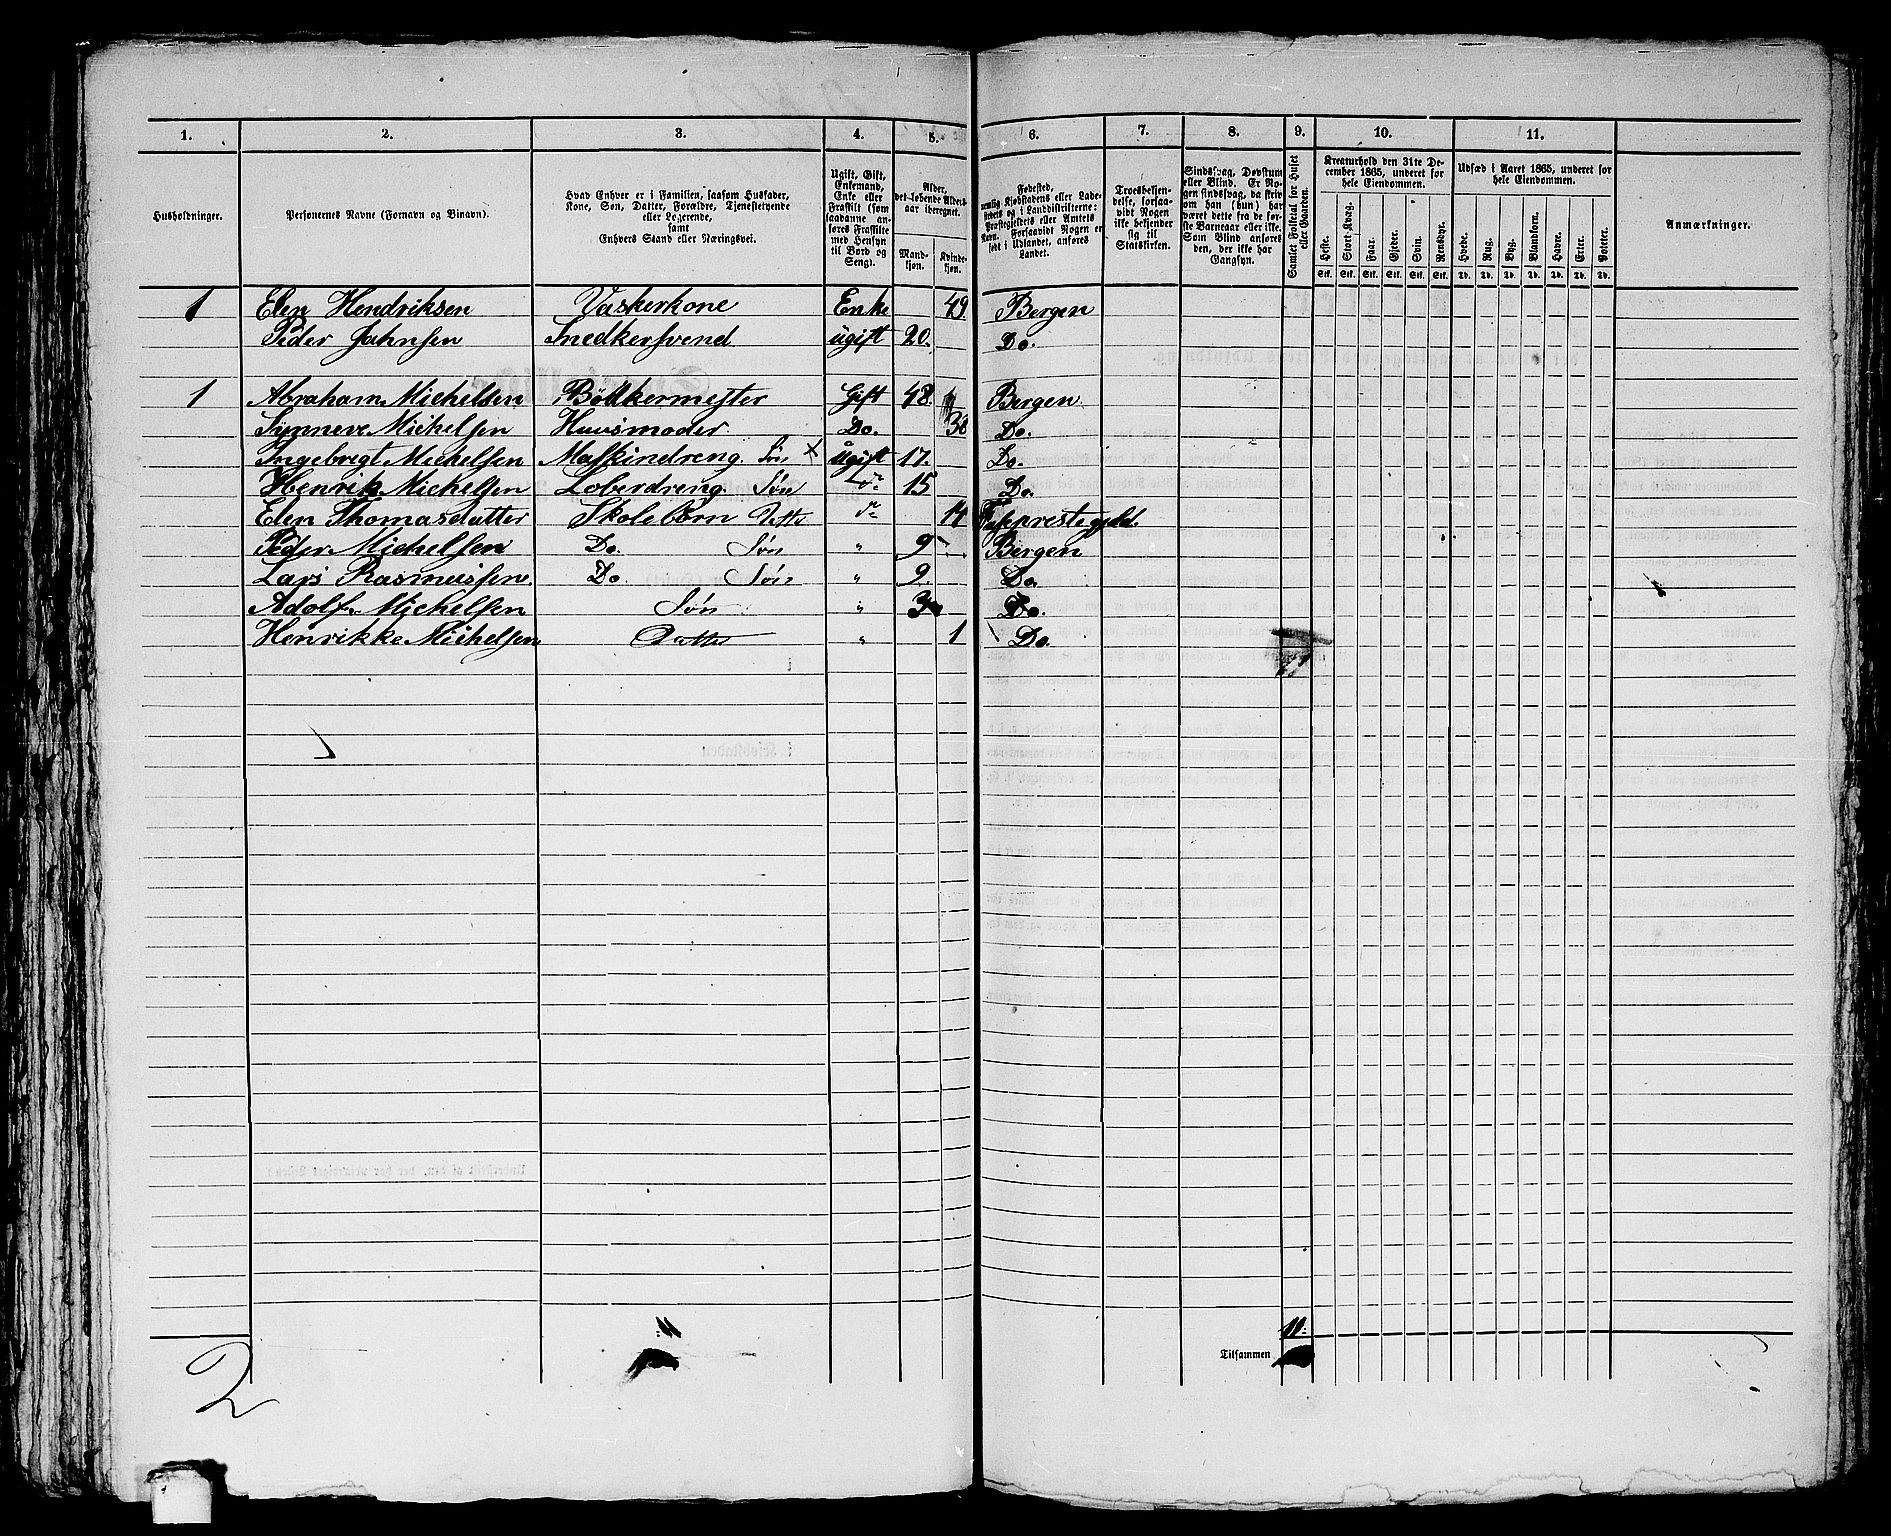 1. 2. 3. 4. 5. 6. 7. 8. 9. 10. 11.
Husholdninger.
Personernes Navne (Fornavn og Binavn).
Hvad Enhver er i Familien, saasom Husfader, Kone, Søn, Datter, Forældre, Tjenestetyende eller Logerende, samt Enhvers Stand eller Næringsvei.
Ugift, Gift, Enkemand, Enke eller Fraskilt (som saadanne anføres Fraskilte med Hensyn til Bord og Seng).
Alder, det løbende Aldersaar iberegnet.
Mandkjøn. Kvindekjøn.
Fødested, nemlig Kjøbstadens eller Ladestedets og i Landdistrikterne: Præstegjeldets eller Amtets Navn. Forsaavidt Nogen er født i Udlandet, anføres Landet.
Troesbekjendelse, forsaavidt Nogen ikke bekjender sig til Statskirken.
Sindssvag, Døvstum eller Blind. Er Nogen sindssvag, da skrives om han (hun) har været dette fra de første Barneaar eller ikke. Som Blind anføres den, der ikke har Gangsyn.
Samlet Folketal for Huset eller Gaarden.
Kreaturhold den 31te December 1865, underet for hele Eiendommen.
Heste. Stort Kvæg. Faar. Gjeder. Svin. Rensdyr.
Stk. Stk. Stk. Stk. Stk. Stk.
Udsæd i Aaret 1865, underet for hele Eiendommen.
Hvede. Rug. Byg. Blandkorn. Havre. Erter. Poteter.
Td. Td. Td. Td. Td. Td. Td.
Anmærkninger.
1 Elen Hendriksen Vaskerkone Enke 49. Bergen
Peder Jahnsen Snedkersvend ugift 20. Do.
1 Abraham Michelsen Bødkermester Gift 48. Bergen.
Synneve Michelsen Huusmoder Do. 38 Do.
Ingebrigt Michelsen Maskindreng. Søn × ugift 17. Do.
Henrik Michelsen Loberdreng. Søn do 15 Do.
Elen Thomasdatter Skolebørn Datter do 14
Peder Michelsen Do. Søn " 9 Bergen
Lars Rasmussen. Do Søn " 9. Do.
Adolf Michelsen Søn " 3 Do.
Henrikke Michelsen Datter " 1 Do.
11
11
Tilsammen
2